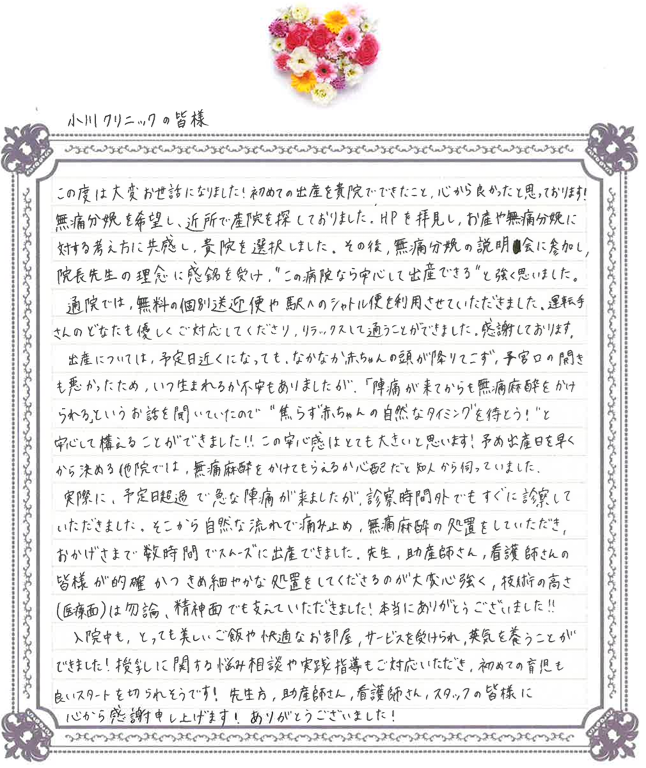 小川クリニックの皆様
この度は大変お世話になりました!初めての出産を貴院でできたこと、心から良かったと思っております!
無痛分娩を希望し、近所で産院を探しておりました。HPを拝見し、お産や無痛分娩に
対する考え方に共感し、貴院を選択しました。その後、無痛分娩の説明会に参加し、
院長先生の理念に感銘を受け、"この病院なら安心して出産できる"と強く思いました。
通院では、無料の個別送迎便や駅へのシャトル便を利用させていただきました。運転手
さんのどなたも優しくご対応してくださり、リラックスして通うことができました。感謝しております。
出産については、予定日近くになっても、なかなか赤ちゃんの頭が降りてこず、子宮口の開き
も悪かったため、いつ生まれるか不安もありましたが、「陣痛が来てからも無痛麻酔をかけ
られる」というお話を聞いていたので"焦らず赤ちゃんの自然なタイミングを待とう!"と
安心して構えることができました!!この安心感はとても大きいと思います!予め出産日を早く
から決める他院では、無痛麻酔をかけてもらえるか心配だと知人から伺っていました。
実際に、予定日超過で急な陣痛が来ましたが、診察時間外でもすぐに診察して
いただきました。そこから自然な流れで痛み止め、無痛麻酔の処置をしていただき、
おかげさまで数時間でスムーズに出産できました。先生、助産師さん、看護師さんの
皆様が的確かつきめ細やかな処置をしてくださるのが大変心強く、技術の高さ
(医療面)は勿論、精神面でも支えていただきました!本当にありがとうございました!!
入院中も、とっても美しいご飯や快適なお部屋、サービスを受けられ、英気を養うことが
できました!授乳に関する悩み相談や実践指導もご対応いただき、初めての育児も
良いスタートを切られそうです!先生方、助産師さん、看護師さん、スタッフの皆様に
心から感謝申し上げます!ありがとうございました!